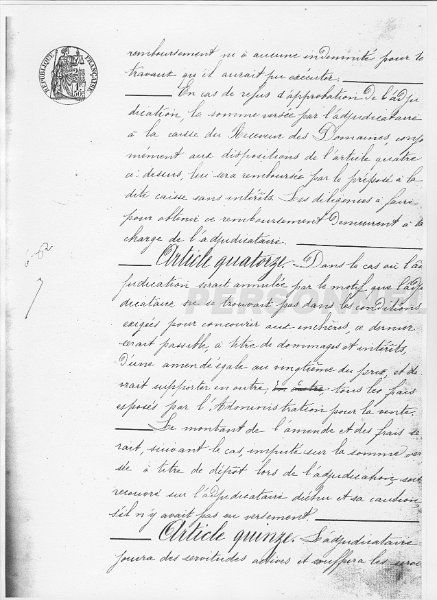 RÉPUBLIQUE FRANÇAISE
remboursement ni à aucune indemnité pour le
travaux qu'il aurait pu exécuter.
En cas de refus d'approbation de l'adju
dication, la somme versée par l'adjudicataire
à la caisse du Receveur des Domaines, confor
mément aux dispositions de l'article quatre
ci-dessus, lui sera remboursée par le préposé à la
dite caisse sans intérêts. Les diligences à faire
pour obtenir ce remboursement demeurent à la
charge de l'adjudicataire.
Article quatorze.- Dans le cas où l'ad
judication serait annulée par le motif que l'adju
dicataire ne se trouvait pas dans les conditions
exigées pour concourir aux enchères, ce dernier
serait passible, à titre de dommages et intérêts,
d'une amende égale au vingtième du prix, et de
vrait supporter en outre tous les frais
exposés par l'Administration pour la vente.
Le montant de l'amende et des frais se
rait, suivant le cas, imputé sur la somme ver
sée à titre de dépôt lors de l'adjudication, soit
recouvré sur l'adjudicataire déchu et sa caution
s'il n'y avait pas eu versement.
Article quinze.- L'adjudicataire
jouira des servitudes actives et souffrira les servi